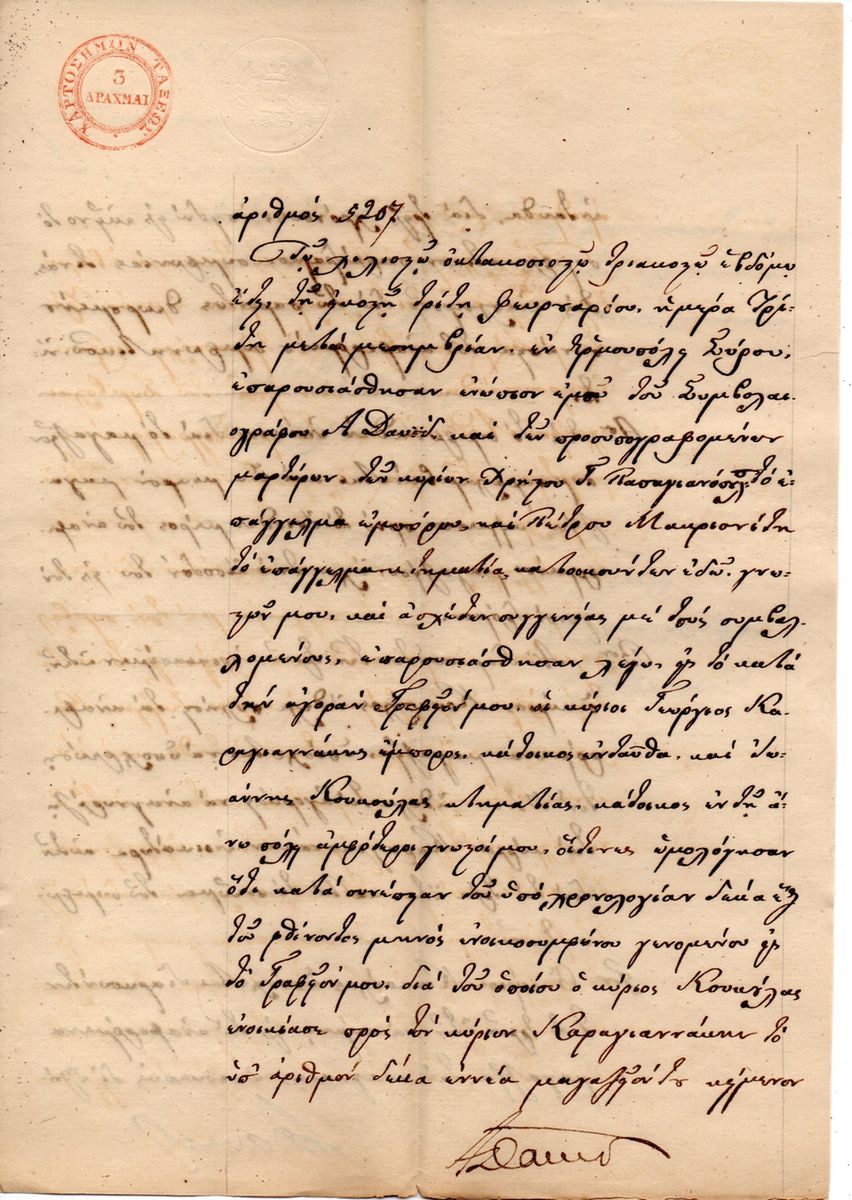 ΧΑΡΤΟΣΗΜΟΝ ΤΑΞΕΩΣ
3
ΔΡΑΧΜΑΙ
ἀριθμός 5207
Τῷ χιλιοστῷ ὀκτακοσιοστῷ τριακοστῷ ἑβδόμῳ
ἔτει, τῇ εἰκοστῇ τρίτῃ Φευρουαρίου, ἡμέρα Τρί-
τη μετά μεσημβρίαν, ἐν Ἑρμουπόλει Σύρου,
ἐπαρουσιάσθησαν ἐνώπιον ἐμοῦ τοῦ Συμβολαι-
ογράφου Α Δαυίδ, και τῶν προσυπογραφομένων
μαρτύρων, τῶν κυρίων Χρήστου Γ. Παπαγιανόπουλ τό ἐ-
πάγγελμα ἐμπόρου, καί Πέτρου Μακριονίτη
τό ἐπάγγελμα κτηματία, κατοικούντων ἐδῶ, γνω-
στῶν μου, καί ἀσχέτων συγγενείας μέ τούς συμβαλ-
λομένους, ἐπαρουσιάσθησαν λέγω, εἰς τό κατά
τήν ἀγοράν Γραφεῖόν μου, οἱ κύριοι Γεώργιος Κα-
ραγιαννάκης ἔμπορος, κάτοικος ἐνταῦθα, καί Ἰω-
άννης Κουκούλας κτηματίας, κάτοικος ἐν τῇ ἄ-
νω πόλει ἀμφότεροι γνωστοί μου, οἵτινες ὡμολόγησαν
ὅτι κατά συνέπειαν τοῦ ὑπό χρονολογίαν δέκα ἑπτά
τοῦ φθίνοντος μηνός ἐνοικοσυμφώνου γενομένου εἰς
τό Γραφεῖόν μου, διά τοῦ ὁποίου ὁ κύριος Κουκούλας
ἐνοικίασε πρός τόν κύριον Καραγιαννάκην τό
ὑπ' ἀριθμόν δέκα ἐννέα μαγαζεῖόν του κείμενον
ΑΔαυίδ